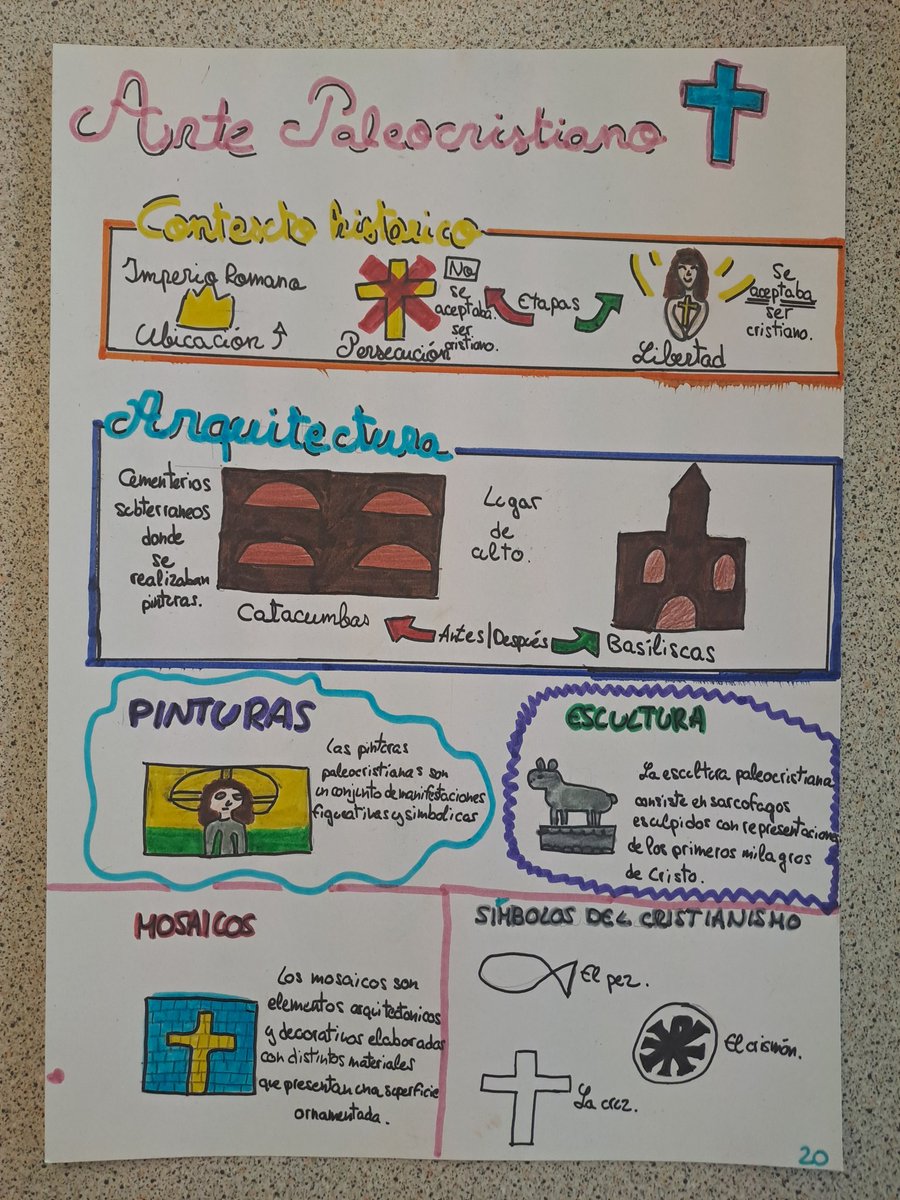 Arte Paleocristiano
Contexto histórico
Imperio Romano
Ubicación
Persecución
No
se
aceptaba
ser
cristiano.
Etapas
Libertad
Se
aceptaba
ser
cristiano.
Arquitectura
Cementerios
subterraneos
donde
se
realizaban
pinturas.
Catacumbas
Antes/Después
Lugar
de
culto.
Basiliscas
PINTURAS
Las pinturas
paleocristianas son
un conjunto de manifestaciones
figurativas y simbolicas
ESCULTURA
La escultura paleocristiana
consiste en sarcofagos
esculpidos con representaciones
de los primeros milagros
de Cristo.
MOSAICOS
Los mosaicos son
elementos arquitectonicos
y decorativos elaborados
con distintos materiales
que presentan una superficie
ornamentada.
SÍMBOLOS DEL CRISTIANISMO
El pez.
El crismón.
La cruz.
20